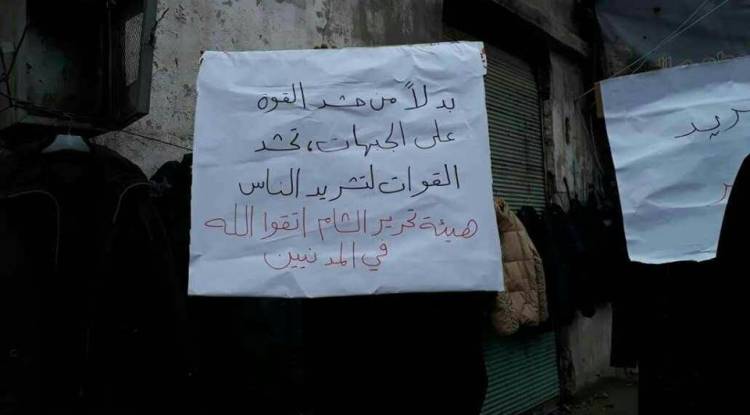 بدلاً من حشد القوة
على الجبهات، تحشد
القوات لتشريد الناس
هيئة تحرير الشام اتقوا الله
في المدنيين